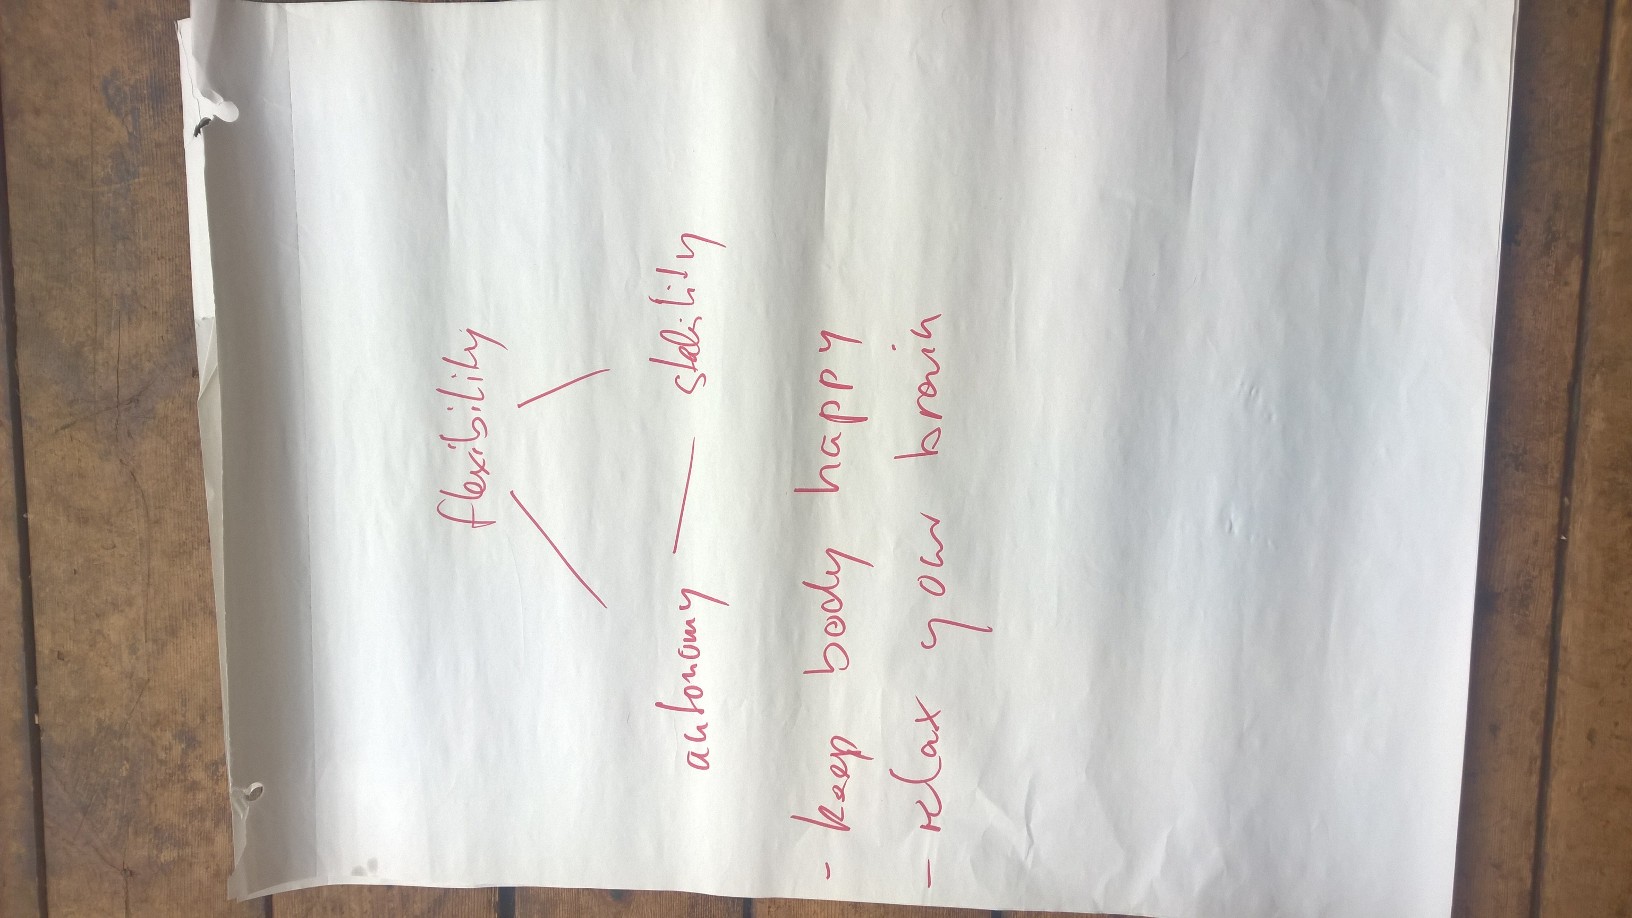 flexibility
autonomy — stability
- keep body happy
- relax your brain